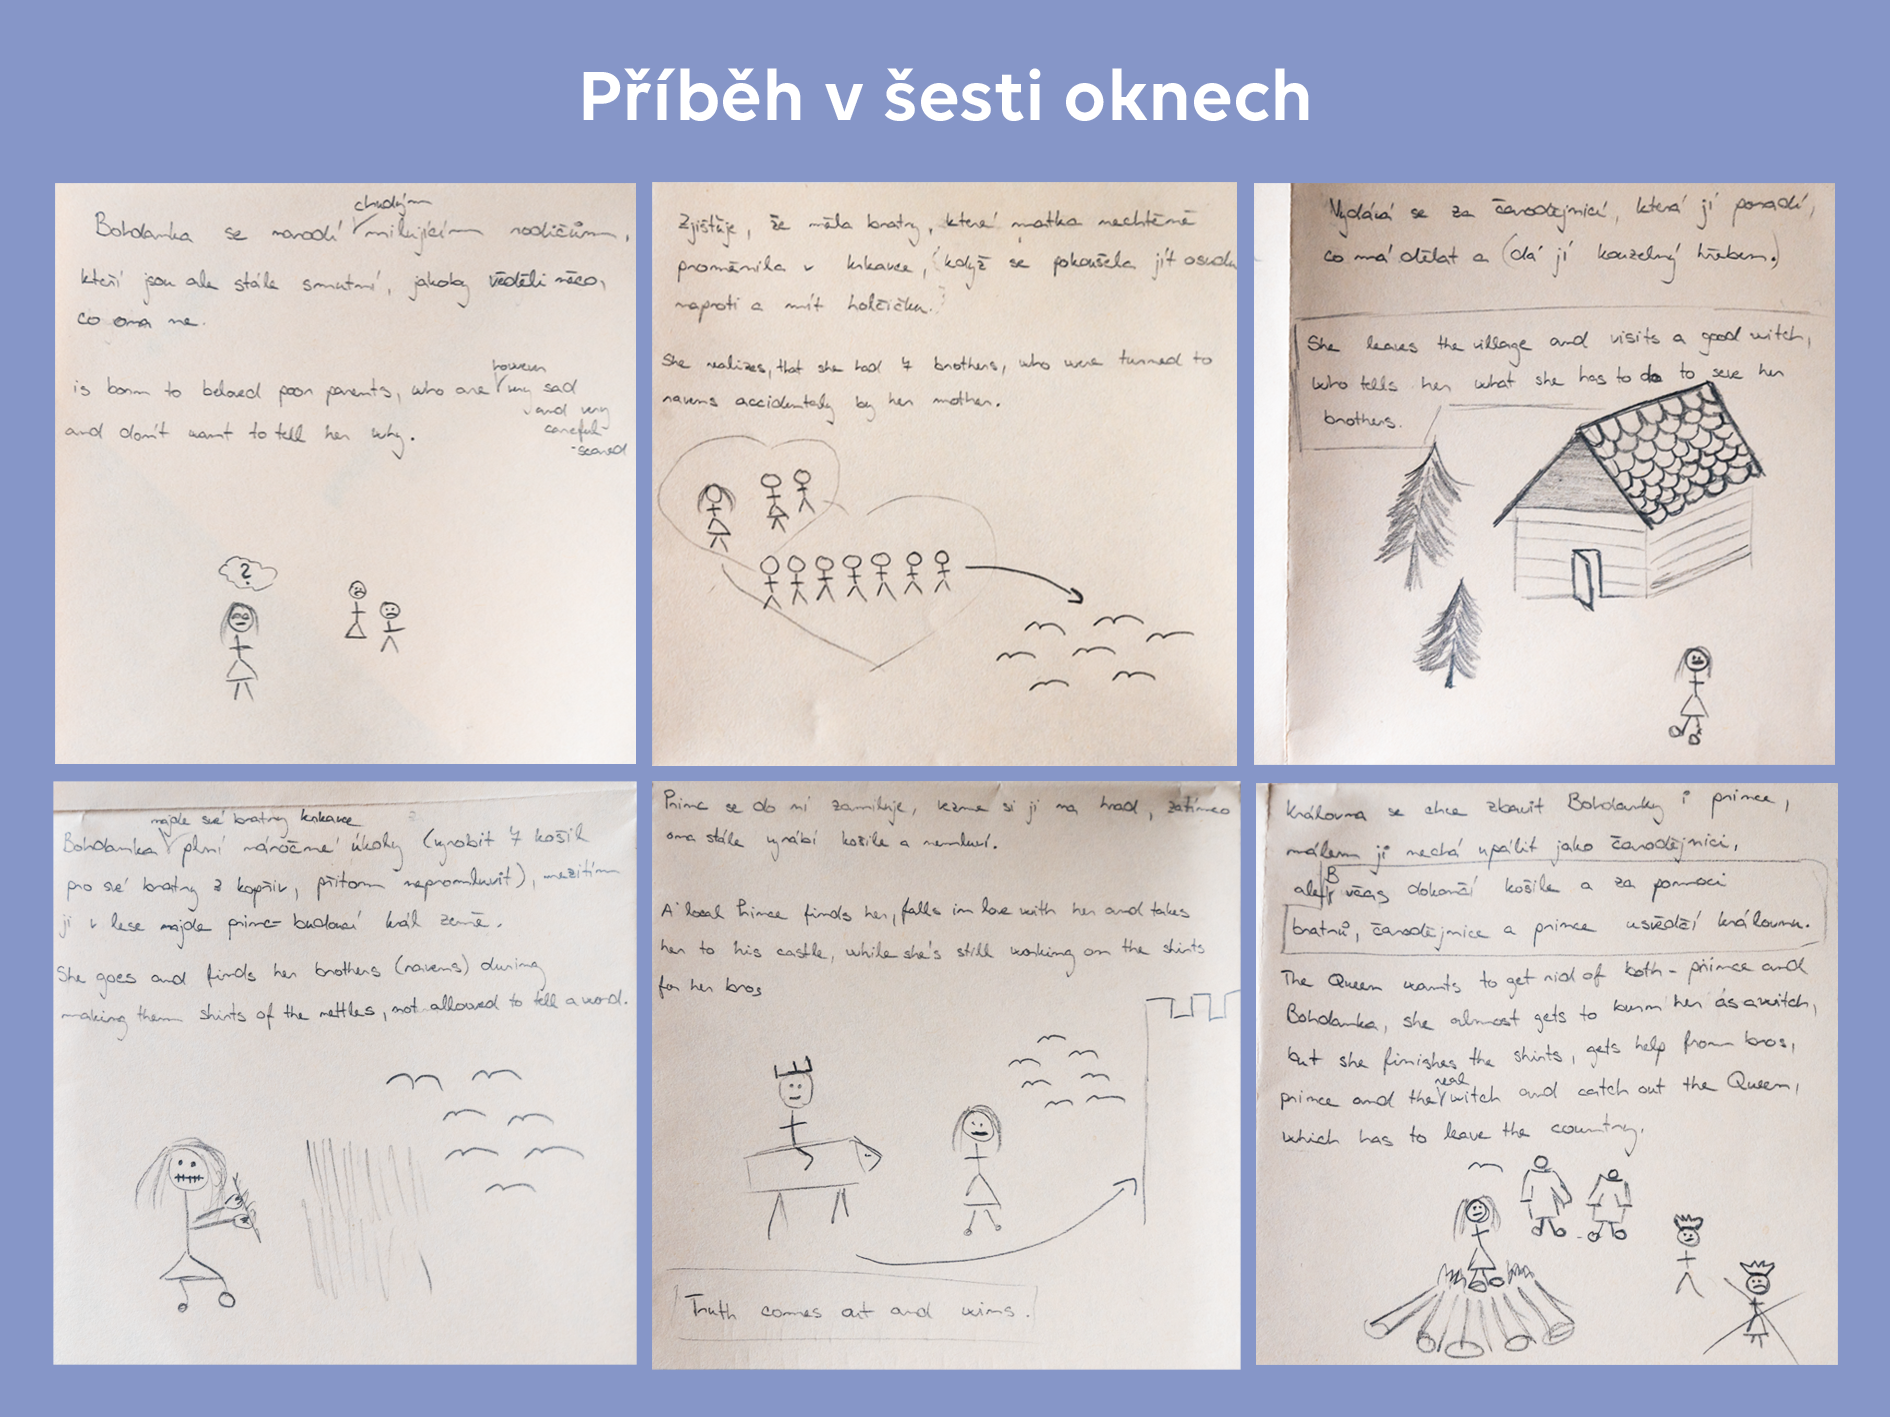 Příběh v šesti oknech
chudým
Bohdanka se narodí milujícím rodičům,
kteří jsou ale stále smutní, jakoby věděli něco,
co ona ne.
however
is born to beloved poor parents, who are very sad
and very
careful
-scared
and don't want to tell her why.
?
Zjišťuje, že měla bratry, které matka nechtěně
proměnila v krkavce, (když se pokoušela jít osudu
naproti a mít holčičku.)
She realizes, that she had 7 brothers, who were turned to
ravens accidentaly by her mother.
Vydává se za čarodějnicí, která jí poradí,
co má dělat a (dá jí kouzelný hřeben.)
She leaves the village and visits a good witch,
who tells her what she has to do to save her
brothers.
najde své bratry krkavce
Bohdanka plní náročné úkoly (vyrobit 7 košil
pro své bratry z kopřiv, přitom nepromluvit), mezitím
ji v lese najde princ - budoucí král země.
She goes and finds her brothers (ravens) during
making them shirts of the nettles, not allowed to tell a word.
Princ se do ní zamiluje, vezme si ji na hrad, zatímco
ona stále vyrábí košile a nemluví.
A local Prince finds her, falls in love with her and takes
her to his castle, while she's still working on the shirts
for her bros
Truth comes out and wins.
Královna se chce zbavit Bohdanky i prince,
málem ji nechá upálit jako čarodějnici,
ale B včas dokončí košile a za pomoci
bratrů, čarodějnice a prince usvědčí královnu.
The Queen wants to get rid of both - prince and
Bohdanka, she almost gets to burn her as a witch,
but she finishes the shirts, gets help from bros,
real
prince and the witch and catch out the Queen,
which has to leave the country.